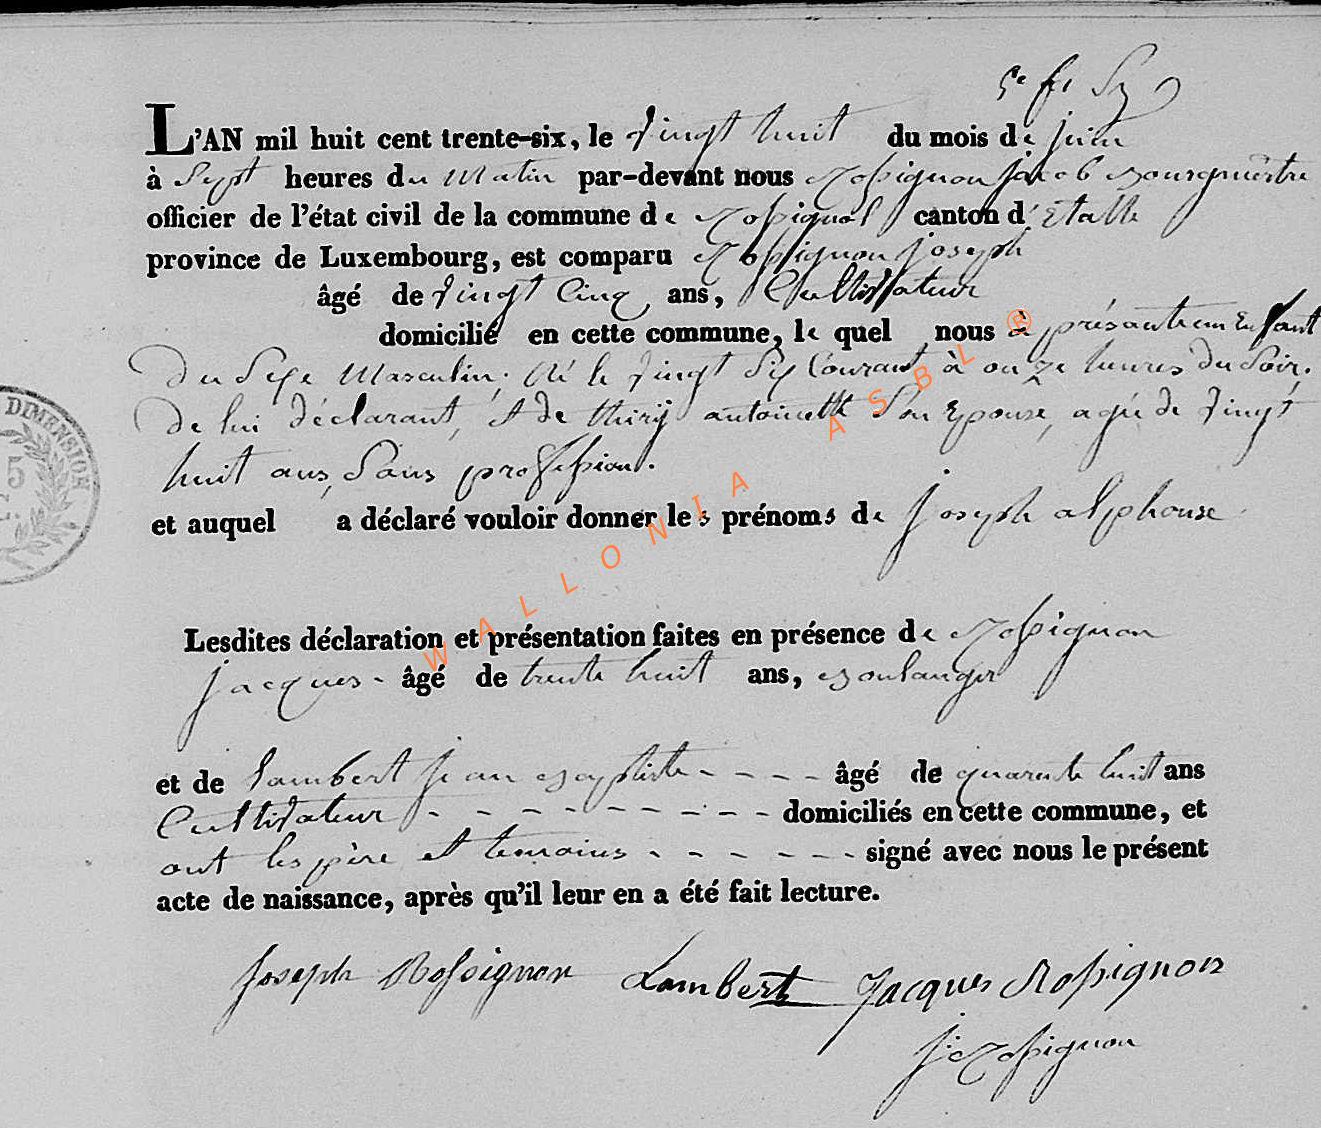 L'AN mil huit cent trente-six, le vingt huit du mois de juin
à Sept heures du Matin par-devant nous Rossignon jacob Bourgmestre
officier de l'état civil de la commune de Rossignol canton d'Etalle
province de Luxembourg, est comparu Rossignon joseph
âgé de vingt Cinq ans, Cultivateur
domicilié en cette commune, le quel nous à présenté un Enfant
Du Sexe Masculin, Né le vingt Six Courant à onze heures Du Soir.
De lui déclarant, & de thiry antoinette Son Epouse, agée de vingt
huit ans, Sans profession.
et auquel a déclaré vouloir donner les prénoms de joseph alphonse
Lesdites déclaration et présentation faites en présence de Rossignon
jacques âgé de trente huit ans, Boulanger
et de Lambert jean Baptiste - - - - âgé de quarente huit ans
Cultivateur - - - - - - - - - domiciliés en cette commune, et
ont les père et temoins - - - - - - signé avec nous le présent
acte de naissance, après qu'il leur en a été fait lecture.
Joseph Rossignon Lambert Jacques Rossignon
j: Rossignon
DIMENSION
5
WALLONIA ASBL ®